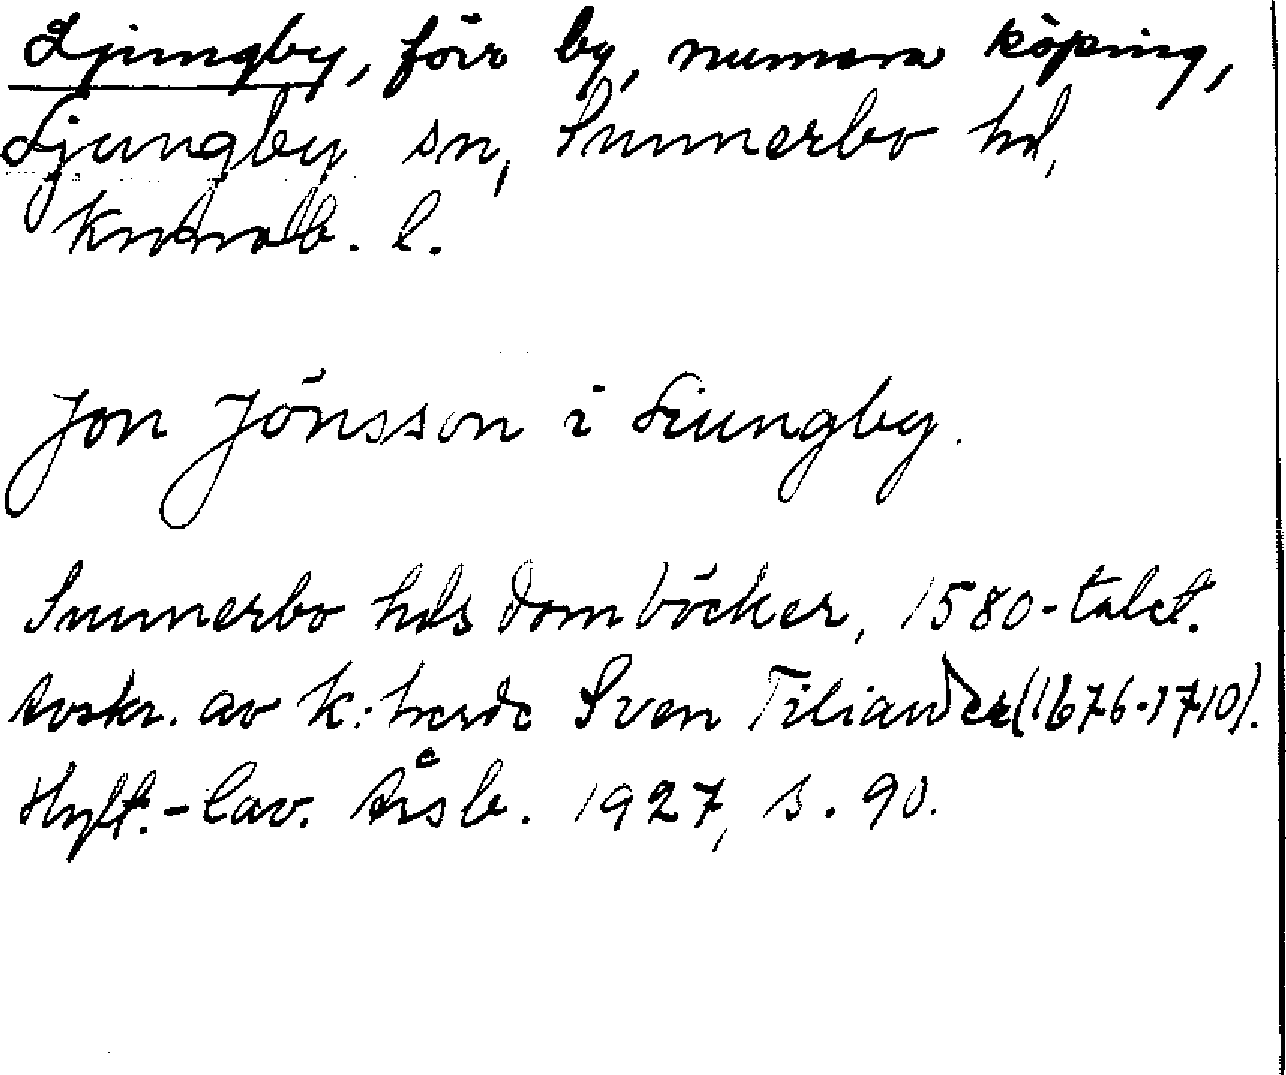 Ljungby, förr by, numera köping,
Ljungby sn, Sunnerbo hd,
Kronob. l.
Jon Jönsson i Liungby.
Sunnerbo hds domböcker, 1580-talet.
Avskr. av k:herde Sven Tiliander (1676-1710).
Hylt.-Cav. Årsb. 1927, s. 90.